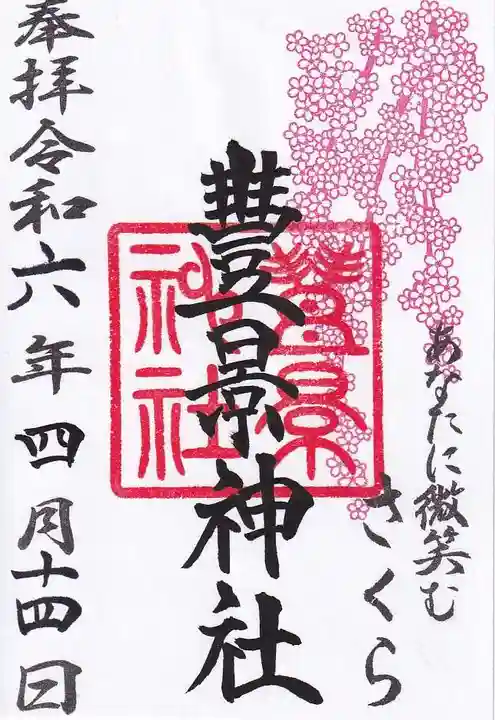 あなたに微笑む
さくら
豊景神社
豊景神社
奉拝令和六年四月十四日